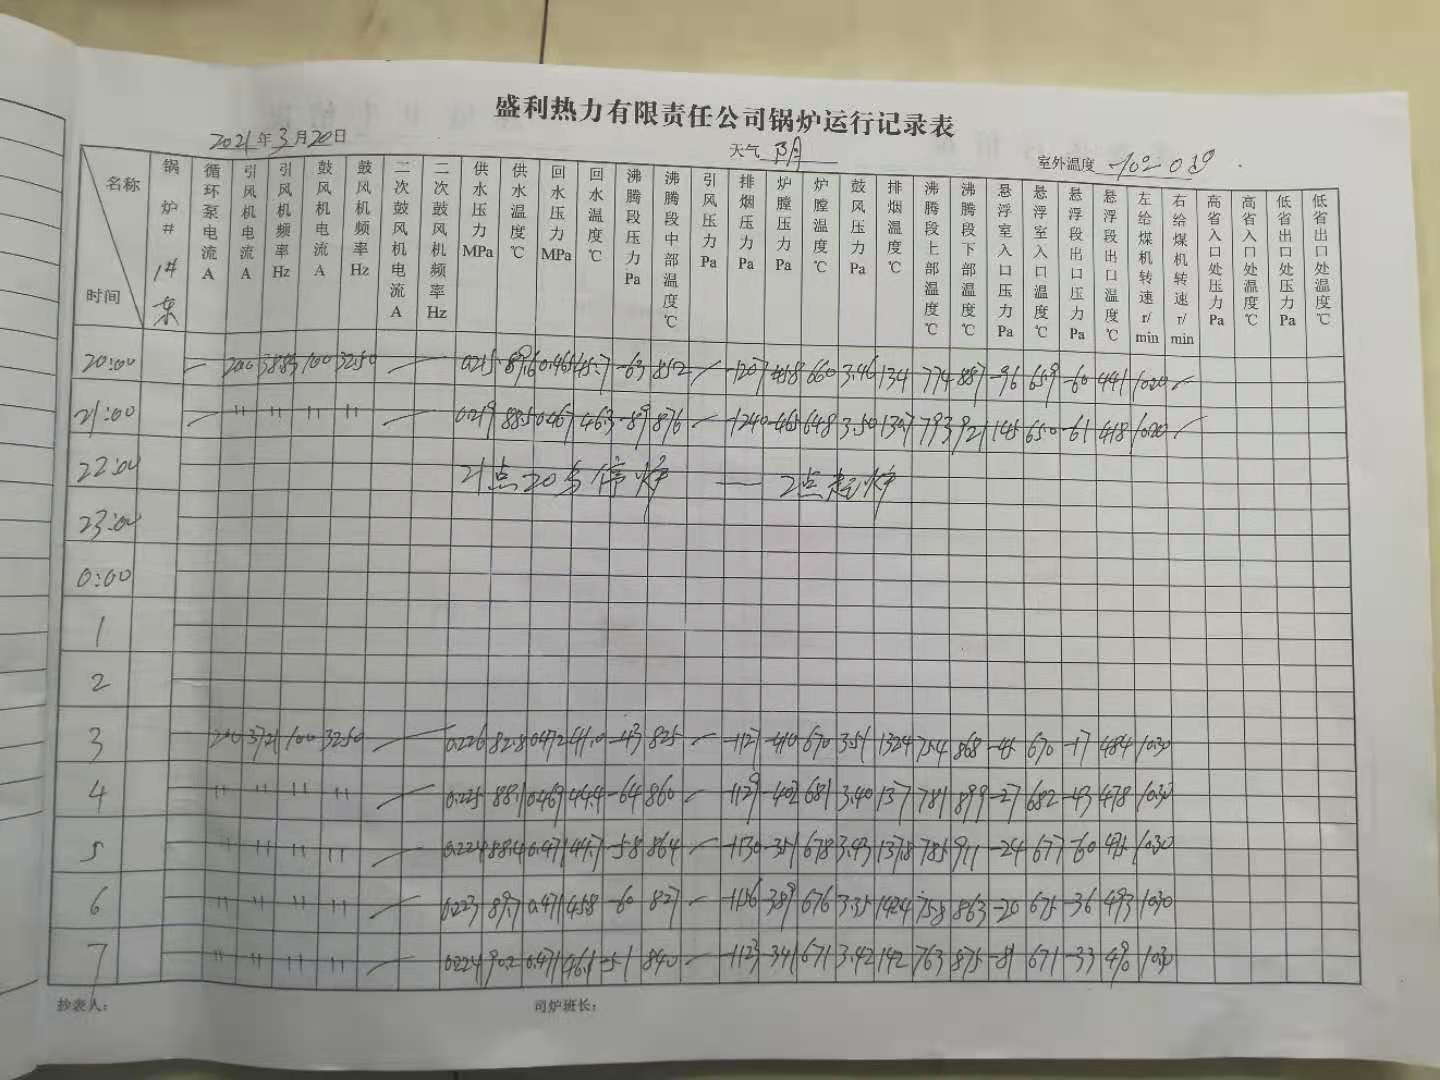 盛利热力有限责任公司锅炉运行记录表
2021年3月20日 天气 阴 室外温度
名称 时间 锅炉# 1# 东 循环泵电流A 引风机电流A 引风机频率Hz 鼓风机电流A 鼓风机频率Hz 二次鼓风机电流A 二次鼓风机频率Hz 供水压力MPa 供水温度℃ 回水压力MPa 回水温度℃ 沸腾段压力Pa 沸腾段中部温度℃ 引风压力Pa 排烟压力Pa 炉膛压力Pa 炉膛温度℃ 鼓风压力Pa 排烟温度℃ 沸腾段上部温度℃ 沸腾段下部温度℃ 悬浮室入口压力Pa 悬浮室入口温度℃ 悬浮段出口压力Pa 悬浮段出口温度℃ 左给煤机转速r/min 右给煤机转速r/min 高省入口处压力Pa 高省入口处温度℃ 低省出口处压力Pa 低省出口处温度℃
20:00 — 200 38.83 100 32.50 — 0.215 89.6 0.465 45.7 -63 852 — -1207 -458 660 3.46 134 774 887 -96 659 -60 441 1020 —
21:00 — 〃 〃 〃 〃 — 0.219 88.5 0.467 46.3 -89 876 — -1240 -465 648 3.50 139.7 793 921 145 650 -61 418 1020 —
22:00 21点20分停炉 — 2点起炉
23:00
0:00
1
2
3 200 37.21 100 32.50 — 0.226 82.8 0.472 41.0 -43 825 — -1127 -410 670 3.51 132.4 754 868 -45 670 -17 484 1030
4 〃 〃 〃 〃 — 0.225 88.1 0.469 44.4 -64 860 — -1129 -402 681 3.40 137 781 899 -27 682 -43 478 1030
5 〃 〃 〃 〃 — 0.224 88.4 0.471 44.7 -58 864 — -1130 -351 678 3.43 137.8 785 911 -24 677 -60 475 1030
6 〃 〃 〃 〃 — 0.223 89.7 0.471 45.8 -60 827 — -1156 -389 676 3.35 142.4 758 863 -20 675 -36 493 1030
7 〃 〃 〃 〃 — 0.224 90.2 0.471 46.1 -51 840 — -1123 -341 671 3.42 142 763 875 -81 671 -33 490 1030
抄表人: 司炉班长: